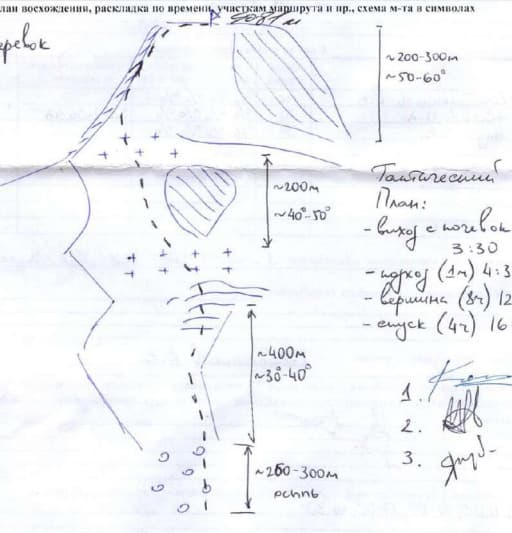 лан восхождения, раскладка по времени, участкам маршрута и пр., схема м-та в символах
еревок
~200-300м
~50-60°
~200м
~40°-50°
Тактический
План:
- выход с ночевок
3:30
- подход (1ч) 4:3
- вершина (8ч) 12
- спуск (4ч) 16
~400м
~30°-40°
1.
2.
3.
~200-300м
осыпь